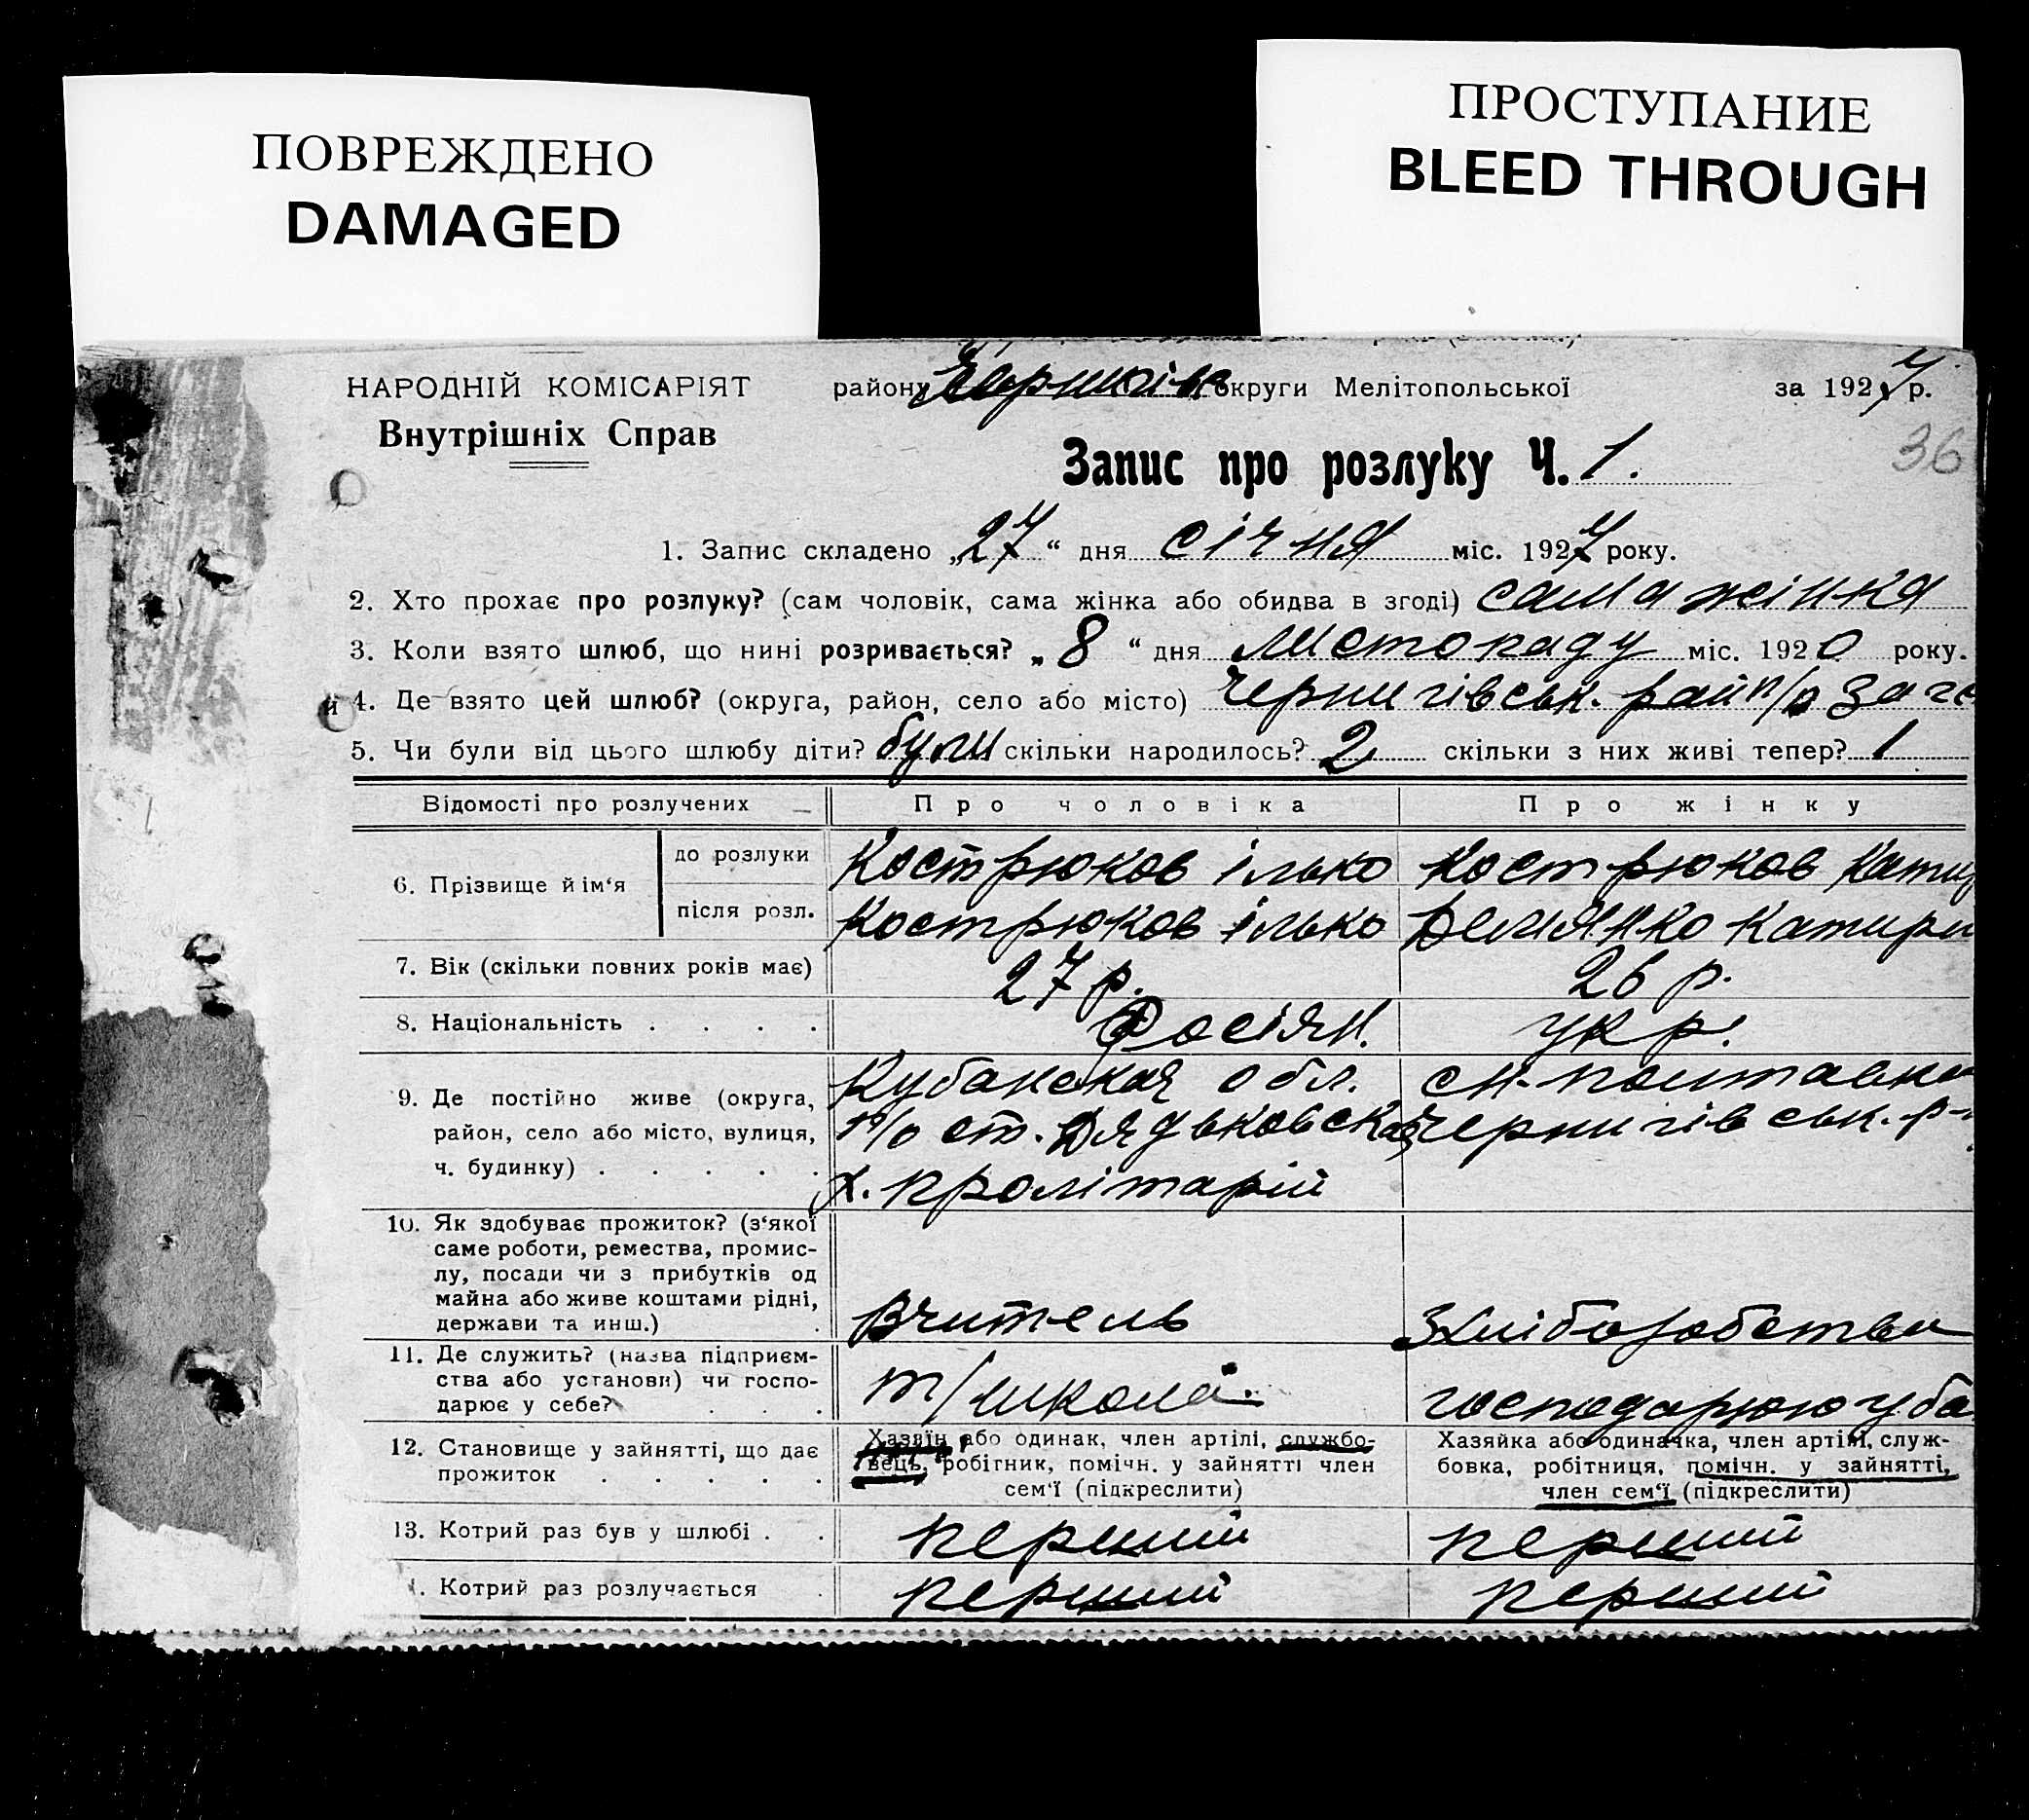 ПОВРЕЖДЕНО
DAMAGED
ПРОСТУПАНИЕ
BLEED THROUGH
НАРОДНІЙ КОМІСАРІЯТ
Внутрішніх Справ
району Чернигівськ округи Мелітопольської за 1927 р.
36
Запис про розлуку Ч. 1.
1. Запис складено „27“ дня січня міс. 1927 року.
2. Хто прохає про розлуку? (сам чоловік, сама жінка або обидва в згоді) сама жінка
3. Коли взято шлюб, що нині розривається? „8“ дня листопаду міс. 1920 року.
4. Де взято цей шлюб? (округа, район, село або місто) Чернигівськ. рай п/в Загс
5. Чи були від цього шлюбу діти? були скільки народилось? 2 скільки з них живі тепер? 1
Відомості про розлучених Про чоловіка Про жінку
6. Прізвище й ім‘я
до розлуки Кострюков Ілько Кострюков Кати
після розл. Кострюков Ілько Демянко Катири
7. Вік (скільки повних років має) 27 р. 26 р.
8. Національність . . . . Росіян. укр.
9. Де постійно живе (округа, район, село або місто, вулиця, ч. будинку) . . . . .
Кубанская обл.
п/о ст. Дядьковская
х. Пролітарій
см. Полтавка
Чернигівськ. р-
10. Як здобуває прожиток? (з‘якої
саме роботи, ремества, промис-
лу, посади чи з прибутків од
майна або живе коштами рідні,
держави та инш.)
Вчитель
З хліборобства
11. Де служить? (назва підприєм-
ства або установи) чи госпо-
дарює у себе? . . .
т/школа.
господарюю у ба
12. Становище у зайнятті, що дає
прожиток . . . . .
Хазяїн або одинак, член артілі, службо-
вець, робітник, помічн. у зайнятті член
сем‘ї (підкреслити)
Хазяйка або одиначка, член артілі, служ-
бовка, робітниця, помічн. у зайнятті,
член сем‘ї (підкреслити)
13. Котрий раз був у шлюбі . . перший перший
. Котрий раз розлучається . перший перший